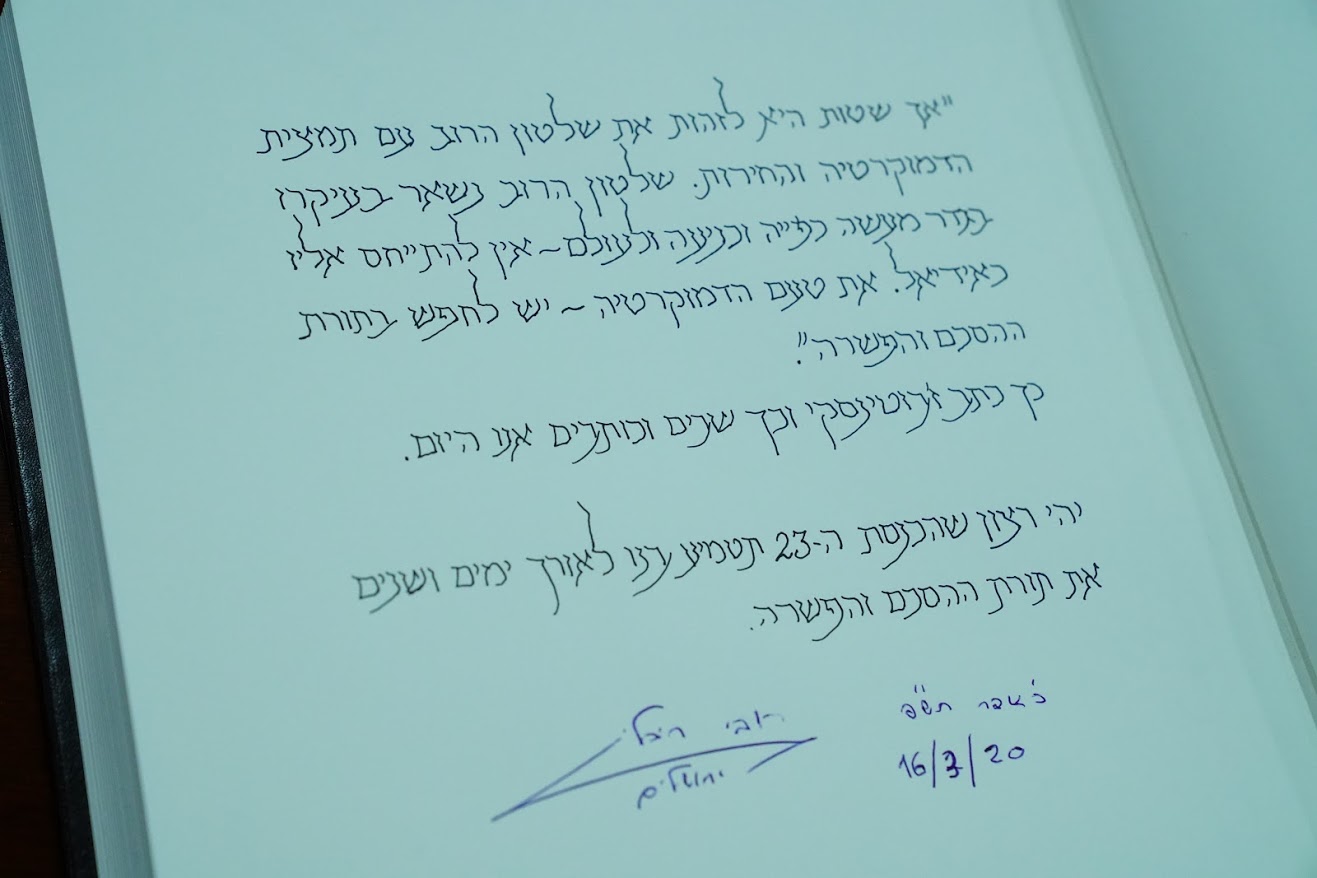 "אך שטות היא לזהות את שלטון הרוב עם תמצית
הדמוקרטיה והחירות. שלטון הרוב נשאר בעיקרו
בגדר מעשה כפייה וכניעה ולעולם ~ אין להתייחס אליו
כאידיאל. את טעם הדמוקרטיה ~ יש לחפש בתורת
ההסכם והפשרה".
כך כתב ז'בוטינסקי וכך שנים וכותבים אנו היום.
יהי רצון שהכנסת ה-23 תטמיע בנו לאורך ימים ושנים
את תורת ההסכם והפשרה.
כ' אדר תש"פ
16/3/20
רובי ריבלין
ירושלים